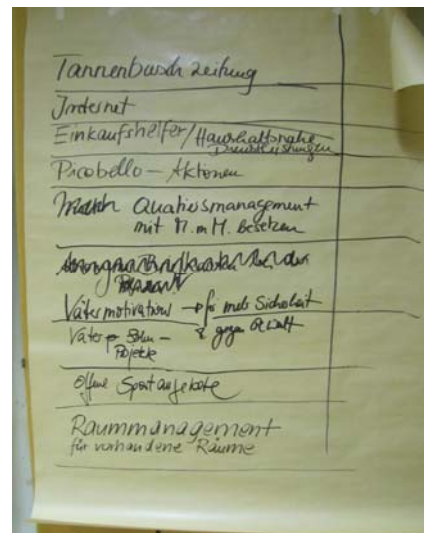 Tannenbusch Zeitung
Internet
Einkaufshelfer/Haushaltsnahe
Dienstleistungen
Picobello - Aktionen
Quatiersmanagement
mit M. m M. besetzen
Vätermotivation → für mehr Sicherheit
& gegen Gewalt
Väter Sohn -
Projekte
offene Sportangebote
Raummanagement
für vorhandene Räume